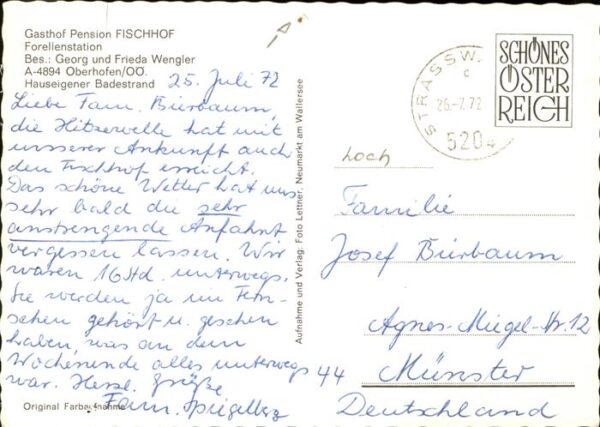 Gasthof Pension FISCHHOF
Forellenstation
Bes.: Georg und Frieda Wengler
A-4894 Oberhofen/OÖ.
Hauseigener Badestrand
25. Juli 72
Liebe Fam. Bürbaum,
die Hitzewelle hat mit
unserer Ankunft auch
den Fischhof erreicht.
Das schöne Wetter hat uns
sehr bald die sehr
anstrengende Anfahrt
vergessen lassen. Wir
waren 16 Std. unterwegs.
Sie werden ja im Fern-
sehen gehört u. gesehen
haben, was an dem
Wochenende alles unterwegs
war. Herzl. Grüße
Fam. Spiegelberg
Original Farbaufnahme
Aufnahme und Verlag: Foto Lettner, Neumarkt am Wallersee
STRASSW
c
26.-7.72
5204
SCHÖNES
ÖSTER
REICH
Familie
Josef Bürbaum
Agnes-Miegel-Str. 12
44 Münster
Deutschland